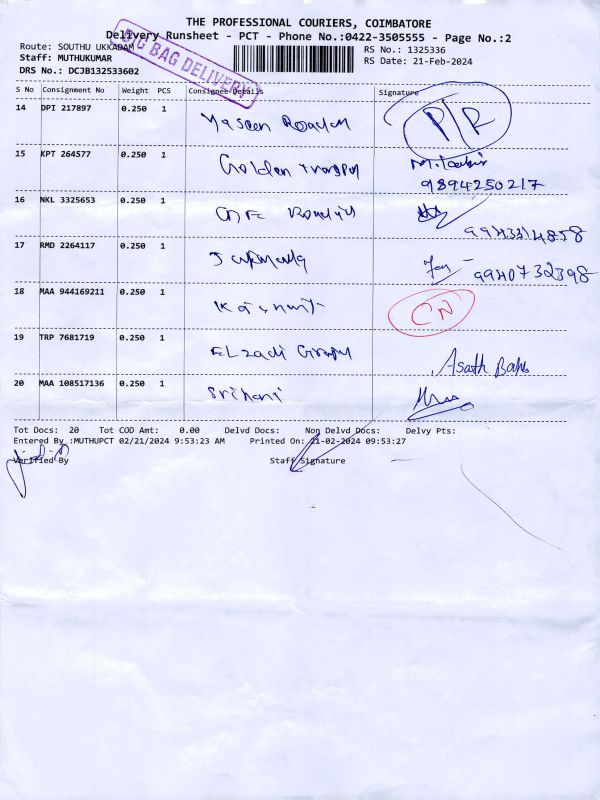 THE PROFESSIONAL COURIERS, COIMBATORE
Delivery Runsheet - PCT - Phone No.:0422-3505555 - Page No.:2
BIG BAG DELIVERY
Route: SOUTHU UKKADAM
RS No.: 1325336
Staff: MUTHUKUMAR
RS Date: 21-Feb-2024
DRS No.: DCJB132533602
S No Consignment No Weight PCS Consignee Details Signature
14 DPI 217897 0.250 1 P/R
15 KPT 264577 0.250 1 Golden
9894250217
16 NKL 3325653 0.250 1
9943314858
17 RMD 2264117 0.250 1
9940732398
18 MAA 944169211 0.250 1 CN
19 TRP 7681719 0.250 1 Asath
20 MAA 108517136 0.250 1
Tot Docs: 20 Tot COD Amt: 0.00 Delvd Docs: Non Delvd Docs: Delvy Pts:
Entered By :MUTHUPCT 02/21/2024 9:53:23 AM Printed On: 21-02-2024 09:53:27
Verified By Staff Signature